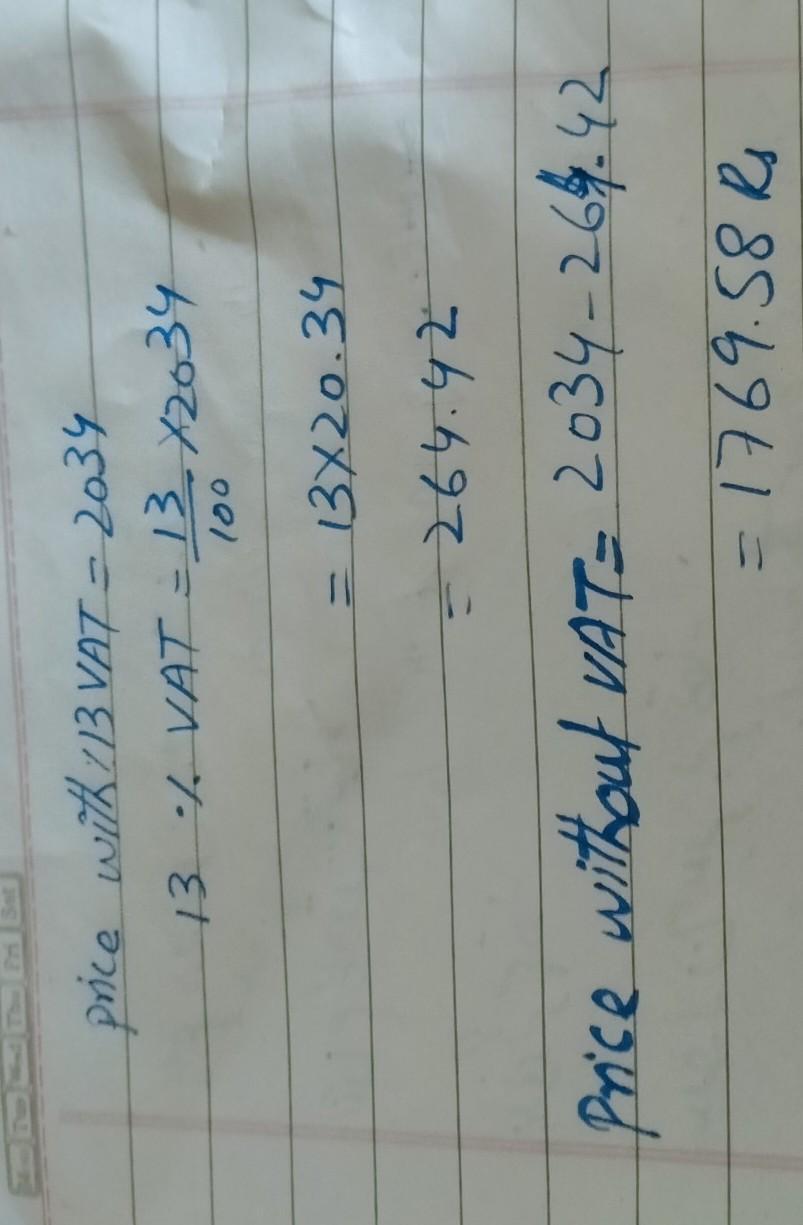 Tue Wed Thu Fri Sat
price with %13 VAT = 2034
13 % VAT = 13/100 × 2034
= 13×20.34
= 264.42
Price without VAT = 2034 - 264.42
= 1769.58 Rs